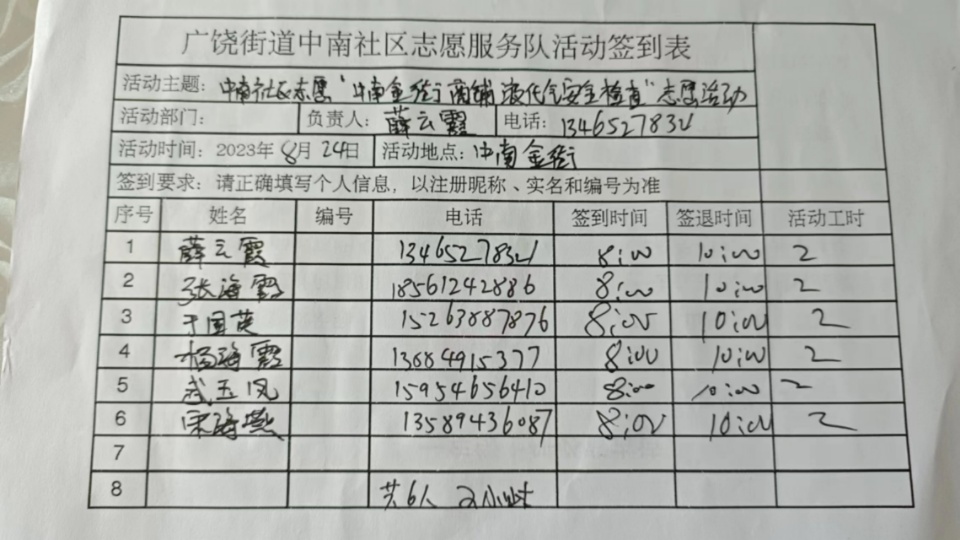 广饶街道中南社区志愿服务队活动签到表
活动主题：中南社区志愿“中南金街商铺液化气安全检查”志愿活动
活动部门： 负责人：薛云霞 电话：13465278321
活动时间：2023年8月24日 活动地点：中南金街
签到要求：请正确填写个人信息，以注册昵称、实名和编号为准
序号 姓名 编号 电话 签到时间 签退时间 活动工时
1 薛云霞 13465278321 8:00 10:00 2
2 张海霞 18561242886 8:00 10:00 2
3 于国英 15263887876 8:00 10:00 2
4 杨海霞 13684915377 8:00 10:00 2
5 武玉凤 15954656410 8:00 10:00 2
6 宋海燕 13589436087 8:00 10:00 2
7
8 共6人 2小时